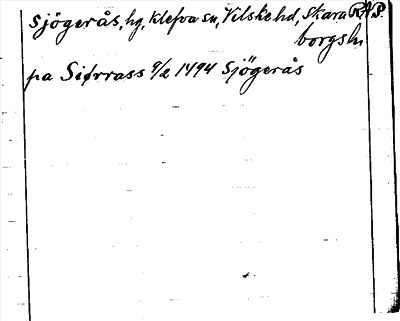 Sjögerås, hg, Klefva sn, Vilske hd, Skara RAP.
borgsln
pa Siørrass 9/2 1494 Sjögerås